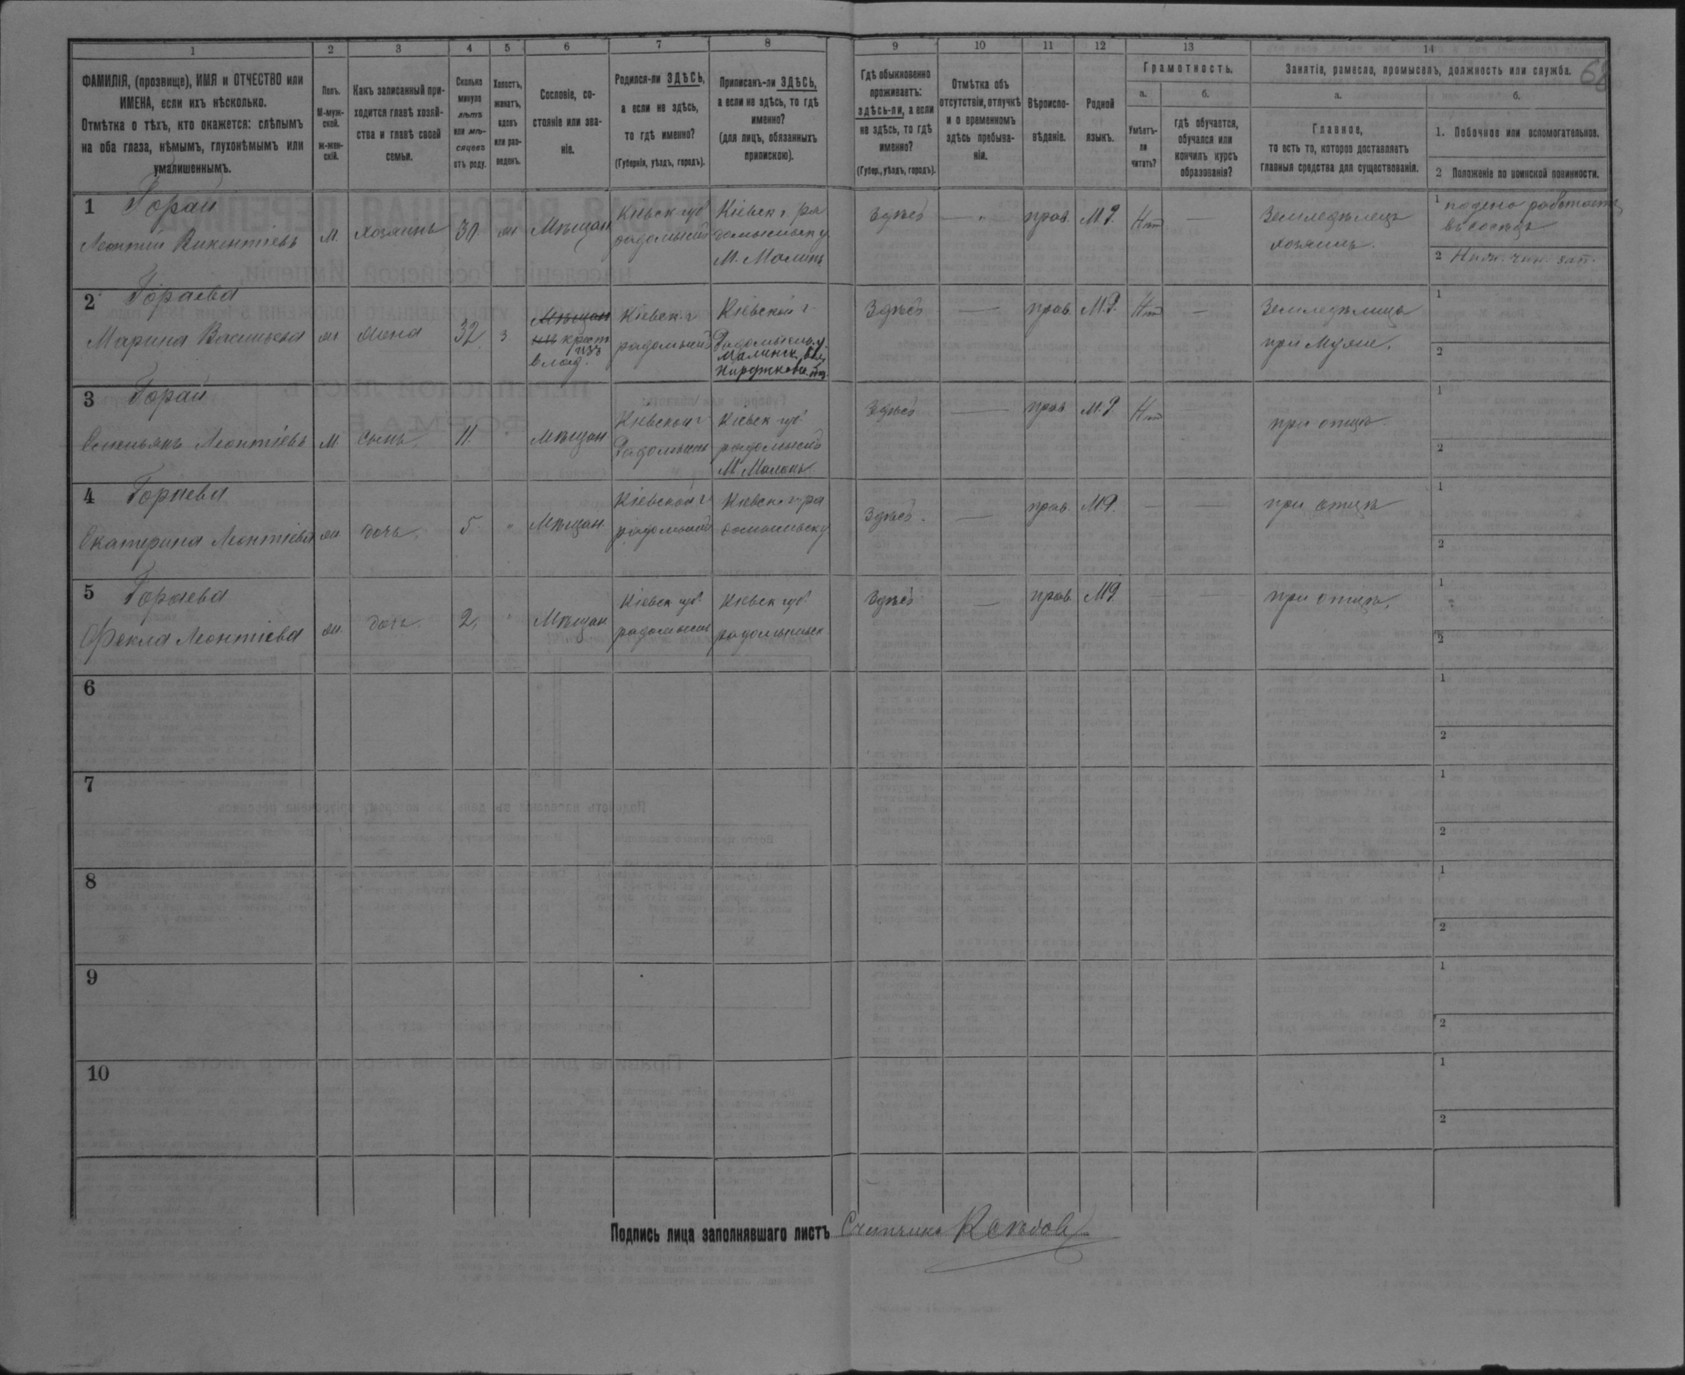 1 2 3 4 5 6 7 8 9 10 11 12 13 14
ФАМИЛІЯ, (прозвище), ИМЯ и ОТЧЕСТВО или
ИМЕНА, если ихъ нѣсколько.
Отмѣтка о тѣхъ, кто окажется: слѣпымъ
на оба глаза, нѣмымъ, глухонѣмымъ или
умалишеннымъ.
Полъ.
М-муж-
ской.
ж-жен-
скій.
Какъ записанный при-
ходится главѣ хозяй-
ства и главѣ своей
семьи.
Сколько
минуло
лѣтъ
или мѣ-
сяцевъ
отъ роду.
Холостъ,
женатъ,
вдовъ
или раз-
веденъ.
Сословіе, со-
стояніе или зва-
ніе.
Родился-ли ЗДѢСЬ,
а если не здѣсь,
то гдѣ именно?
(Губернія, уѣздъ, городъ).
Приписанъ-ли ЗДѢСЬ,
а если не здѣсь, то гдѣ
именно?
(для лицъ, обязанныхъ
припискою).
Гдѣ обыкновенно
проживаетъ:
здѣсь-ли, а если
не здѣсь, то гдѣ
именно?
(Губер., уѣздъ, городъ).
Отмѣтка объ
отсутствіи, отлучкѣ
и о временномъ
здѣсь пребыва-
ніи.
Вѣроиспо-
вѣданіе.
Родной
языкъ.
Грамотность.
а.
Умѣетъ-
ли
читать?
б.
гдѣ обучается,
обучался или
кончилъ курсъ
образованія?
Занятіе, ремесло, промыселъ, должность или служба.
а.
Главное,
то есть то, которое доставляетъ
главныя средства для существованія.
б.
1. Побочное или вспомогательное.
2 Положеніе по воинской повинности.
1 Горай
Леонтій Викентіевъ м. хозяинъ 30 ж Мѣщан Кіевск губ радомысл Кіевск г ра домысльск у М. Малинъ Здѣсь — прав. М.Р. Нѣт — Земледѣлецъ хозяинъ
1 поденно
2 Нижн. чин. зап.
2 Гораева
Марина Васильева ж жена 32 з. Мѣщан крест изъ влад. Кіевск. г радомысл Кіевской г. Радомысл. у. Малинск. вол Здѣсь — прав. М.Р. Нѣт — Земледѣлица при мужѣ.
1
2
3 Горай
Леонтіевъ м сынъ. 11. Мѣщан Кіевской г Радомысл Кіевск губ радомысл М Малинъ Здѣсь — прав. М.Р Нѣт при отцѣ
1
2
4 Гораева
Екатерина Леонтіева ж дочь. 5 Мѣщан Кіевской г радомысл Кіевск г ра домысльск у Здѣсь. — прав. М.Р. — — при отцѣ
1
2
5 Гораева
Фекла Леонтіева ж. дочь 2. Мѣщан Кіевск губ. радомысл Кіевск губ. радомысльск Здѣсь — прав М.Р. — — при отцѣ.
1
2
6
1
2
7
1
2
8
1
2
9
1
2
10
1
2
Подпись лица заполнявшаго листъ Счетчикъ